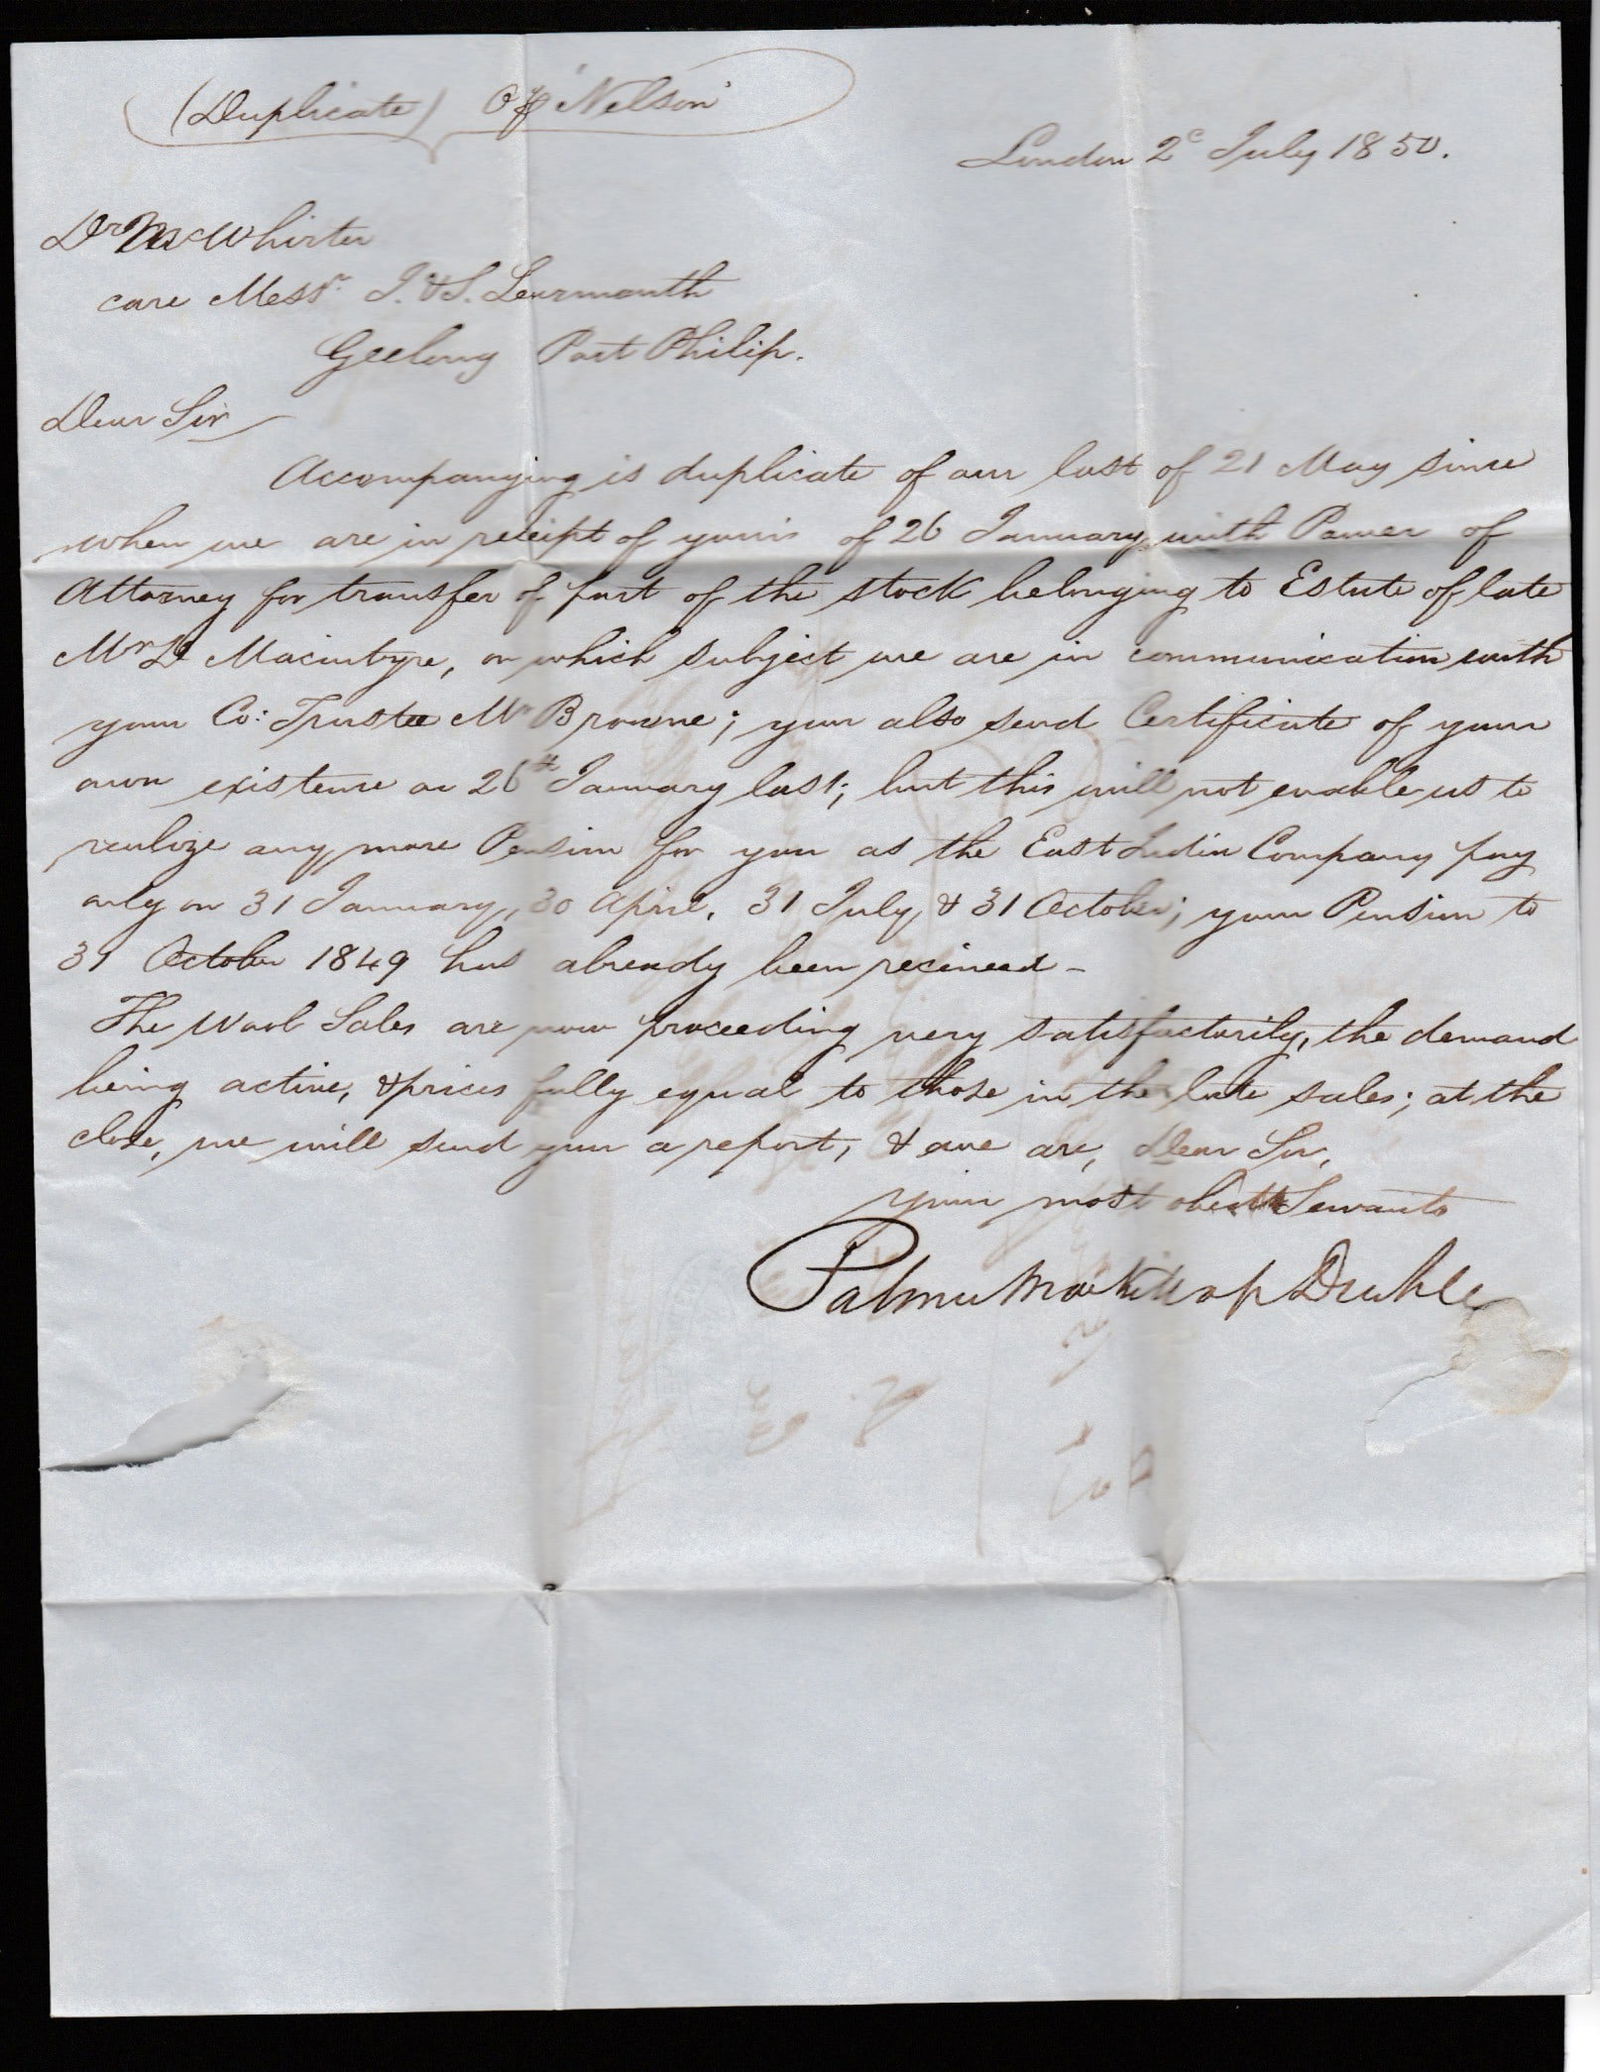 (Duplicate) Of 'Nelson'
London 2c July 1850.
Dr McWhirter
care Messr. J. & S. Learmonth
Geelong Port Philip.
Dear Sir
Accompanying is duplicate of our last of 21 May since
when we are in receipt of yours of 26 January, with Power of
Attorney for transfer of part of the stock belonging to Estate of late
Mr D Macintyre, on which subject we are in communication with
your Co: Trustee Mr Browne; you also send Certificate of your
own existence on 26th January last; but this will not enable us to
realize any more Pension for you as the East India Company pay
only on 31 January, 30 April, 31 July, & 31 October; your Pension to
31 October 1849 has already been received -
The Wool Sales are now proceeding very satisfactorily, the demand
being active, & prices fully equal to those in the late sales; at the
close, we will send you a report, & are, Dear Sir,
your most obedt Servants
Palmer MacKillop Dent &c